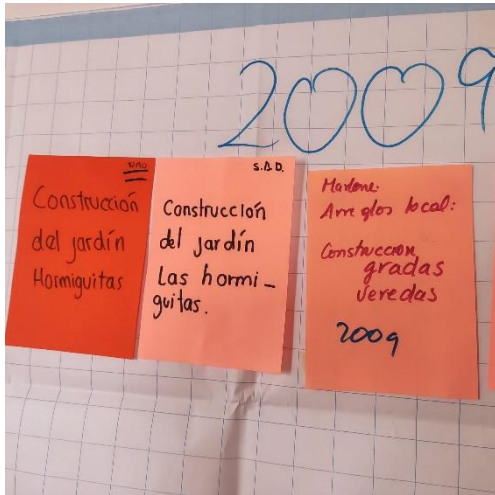 2009
Construcción
del jardín
Hormiguitas
S.D.D.
Construcción
del jardín
Las hormi-
guitas.
Marlene:
Arreglos local:
Construccion
gradas
veredas
2009